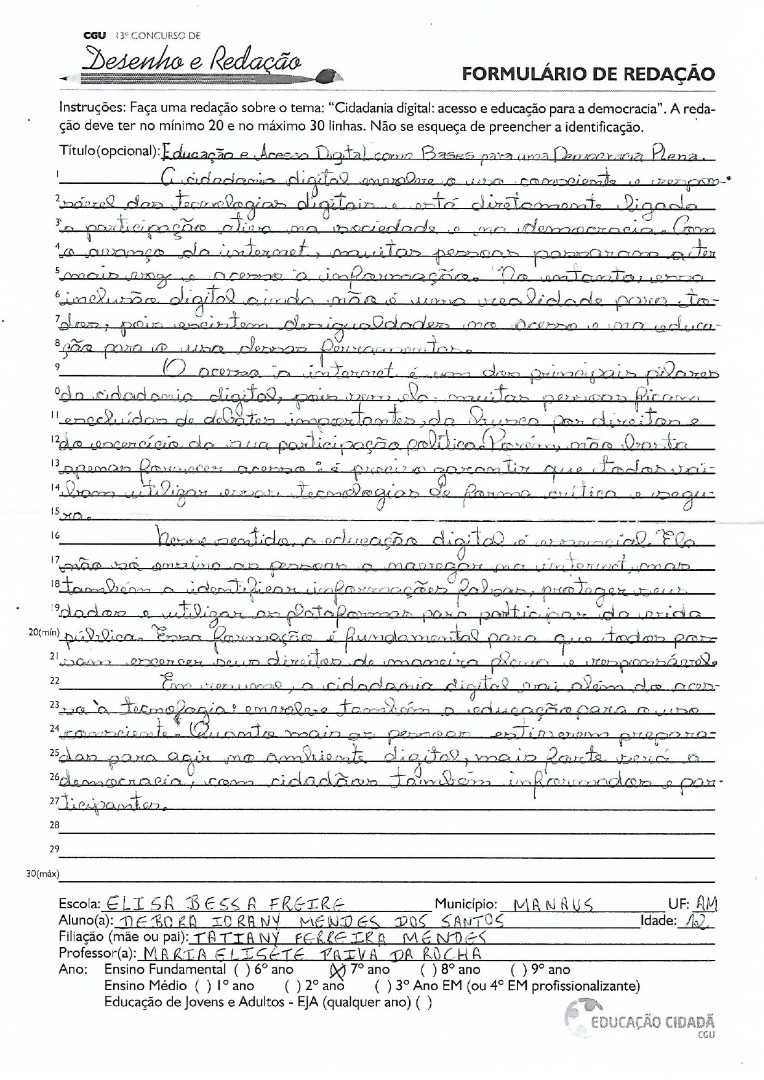 CGU 13º CONCURSO DE
Desenho e Redação
FORMULÁRIO DE REDAÇÃO
Instruções: Faça uma redação sobre o tema: "Cidadania digital: acesso e educação para a democracia". A reda-
ção deve ter no mínimo 20 e no máximo 30 linhas. Não se esqueça de preencher a identificação.
Título(opcional): Educação e Acesso Digital como Bases para uma Democracia Plena.
1 A cidadania digital envolve o uso consciente e respon-
2 sável das tecnologias digitais e está diretamente ligada
3 a participação ativa na sociedade e na democracia. Com
4 o avanço da internet, muitas pessoas passaram a ter
5 mais voz e acesso à informação. No entanto, essa
6 inclusão digital ainda não é uma realidade para to-
7 dos, pois existem desigualdades no acesso e na educa-
8 ção para o uso dessas ferramentas.
9 O acesso à internet é um dos principais pilares
10 da cidadania digital, pois sem ela, muitas pessoas ficam
11 excluídas de debates importantes, da busca por direitos e
12 do exercício da sua participação política. Porém, não basta
13 apenas fornecer acesso: é preciso garantir que todos sai-
14 bam utilizar essas tecnologias de forma crítica e segu-
15 ra.
16 Nesse sentido, a educação digital é essencial. Ela
17 não só ensina as pessoas a navegar na internet, mas
18 também a identificar informações falsas, proteger seus
19 dados e utilizar as plataformas para participar da vida
20(mín) pública. Essa formação é fundamental para que todos pos-
21 sam exercer seus direitos de maneira plena e responsável.
22 Em resumo, a cidadania digital vai além do aces-
23 so à tecnologia: envolve também a educação para o uso
24 consciente. Quanto mais as pessoas estiverem prepara-
25 das para agir no ambiente digital, mais forte será a
26 democracia, com cidadãos também informados e par-
27 ticipantes.
28
29
30(máx)
Escola: ELISA BESSA FREIRE Município: MANAUS UF: AM
Aluno(a): DEBORA IORANY MENDES DOS SANTOS Idade: 12
Filiação (mãe ou pai): TATIANY FERREIRA MENDES
Professor(a): MARIA ELISETE PAIVA DA ROCHA
Ano: Ensino Fundamental ( ) 6º ano (X) 7º ano ( ) 8º ano ( ) 9º ano
Ensino Médio ( ) 1º ano ( ) 2º ano ( ) 3º Ano EM (ou 4º EM profissionalizante)
Educação de Jovens e Adultos - EJA (qualquer ano) ( )
EDUCAÇÃO CIDADÃ
CGU